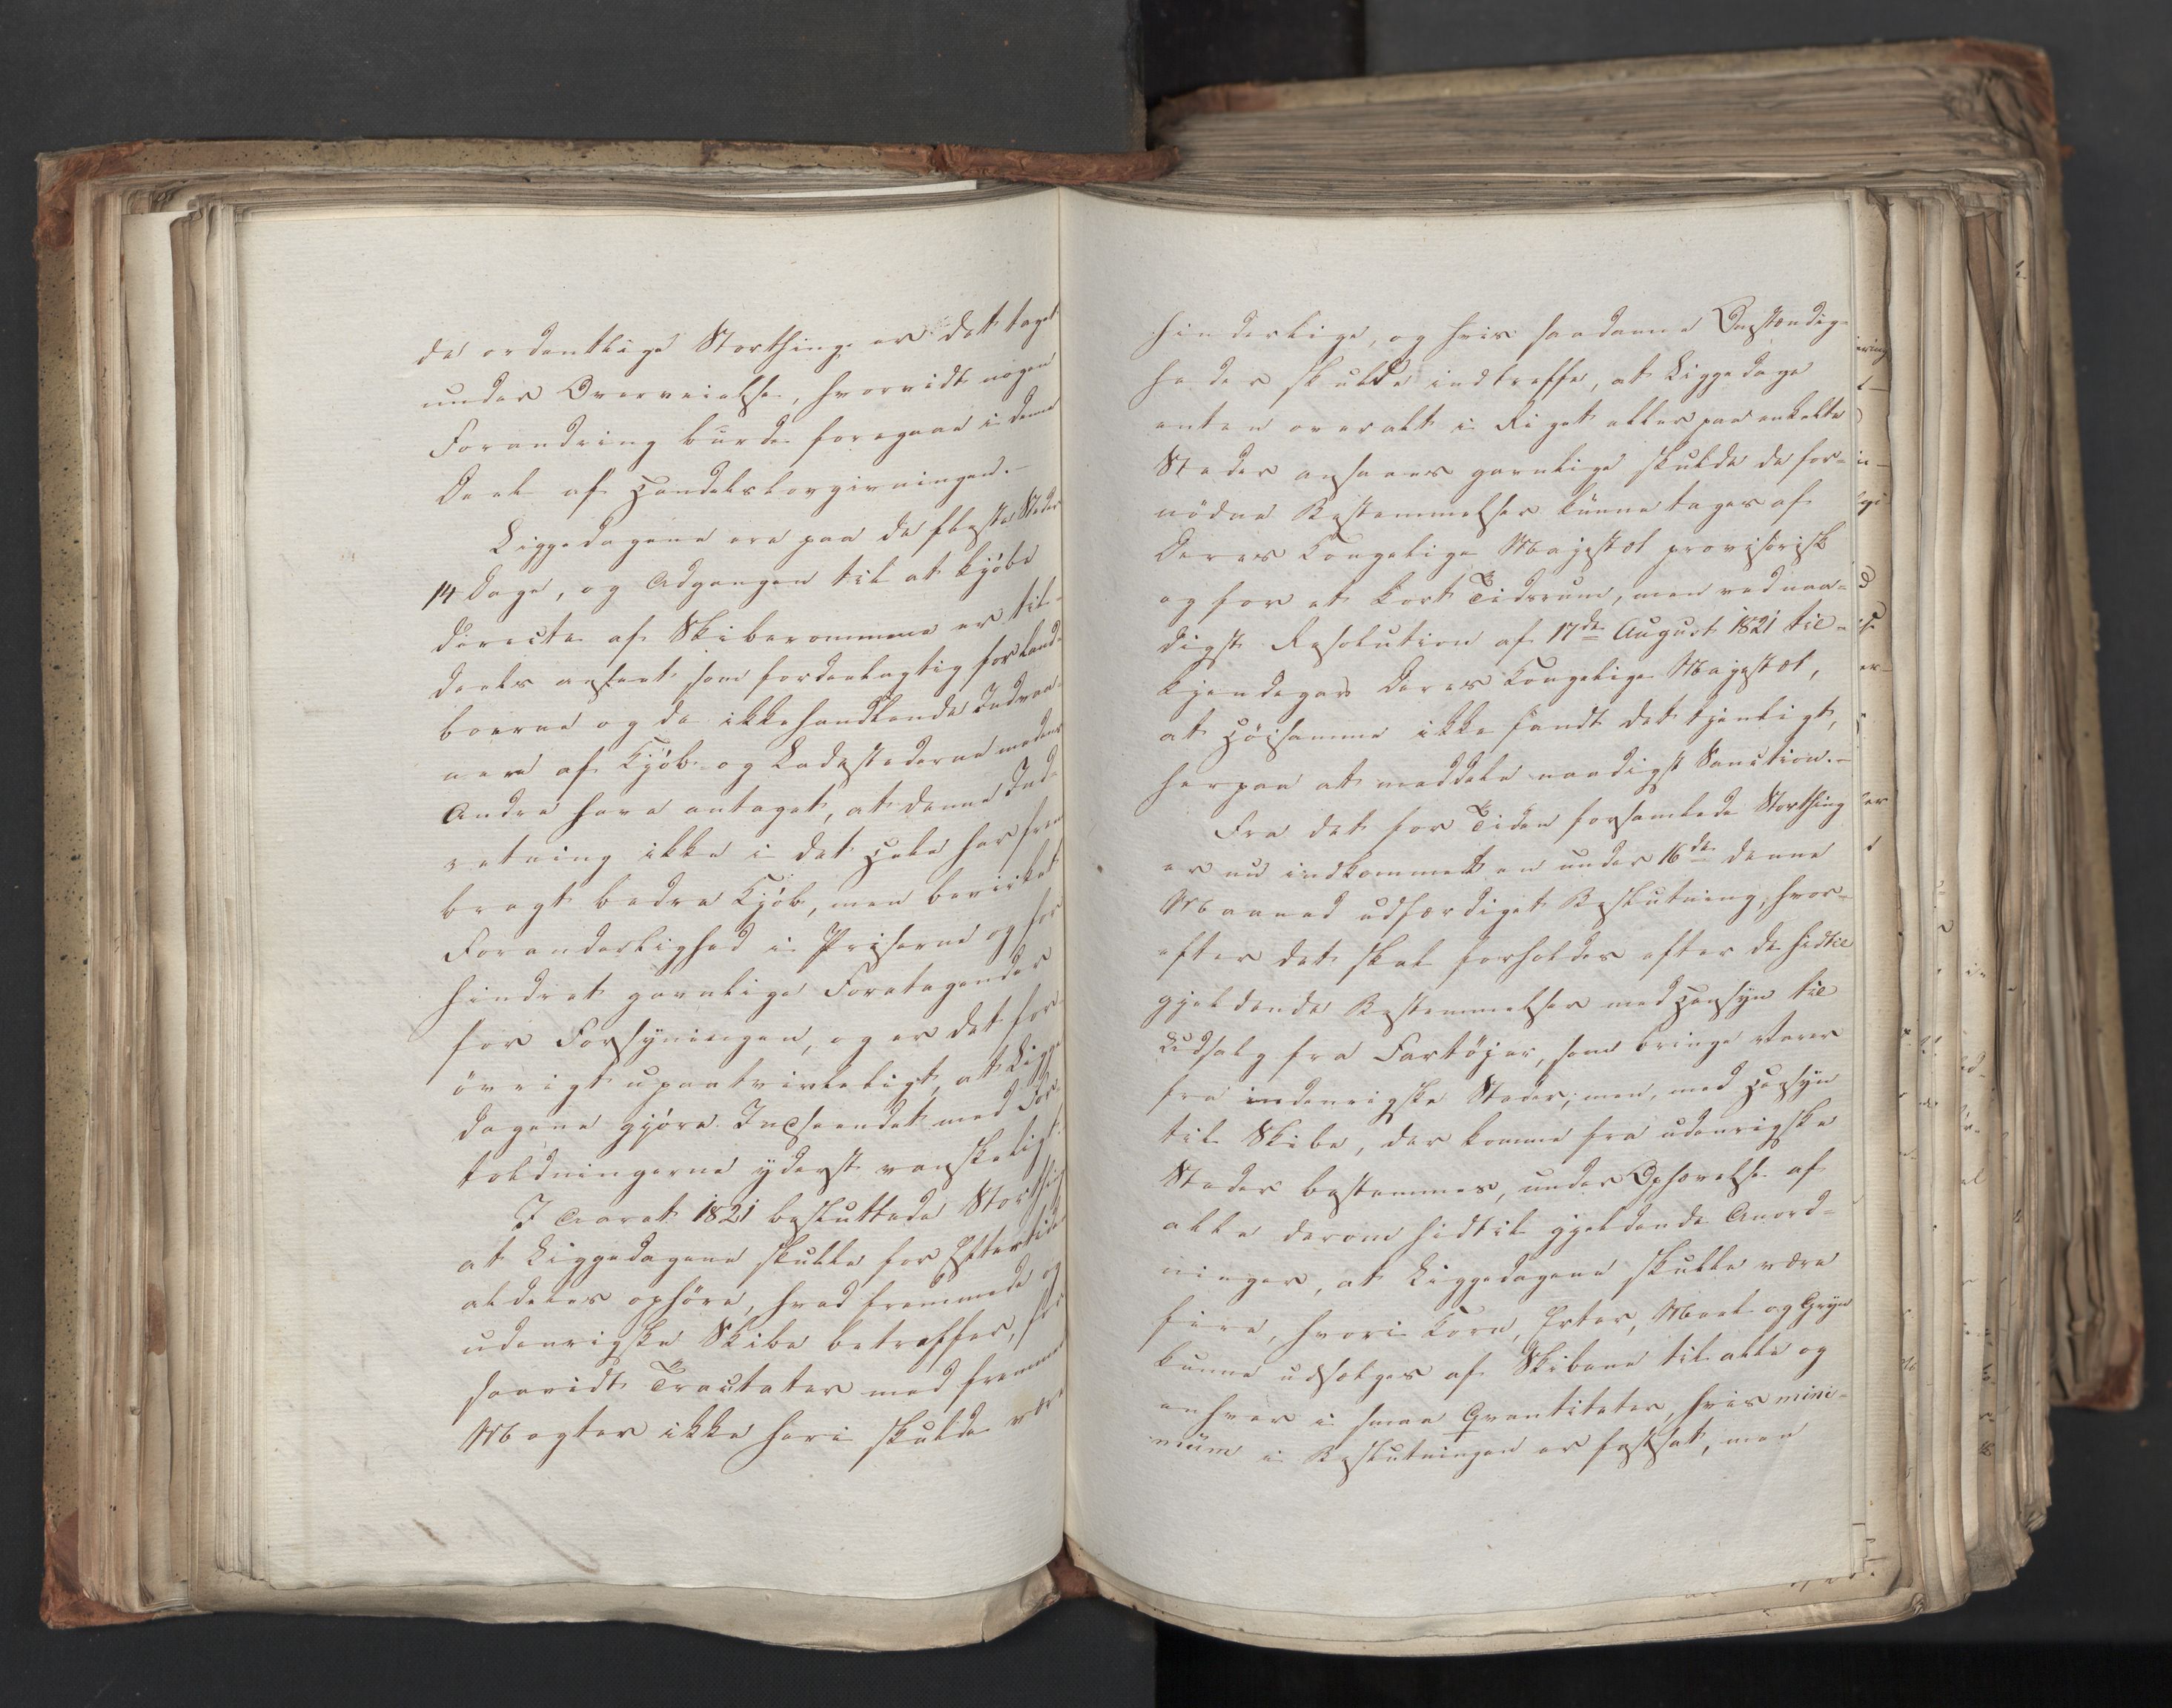 de ordentlige Storthing er det taget
under Overveielse, hvorvidt nogen
Forandring burde foregaae i denne
Deel af Handelslovgivningen.-
Liggedagene ere paa de fleste Steder
14 Dage, og Adgangen til at kjöbe
directe af Skiberommene er til-
deels anseet som fordeelagtig for Land-
boerne og de ikkehandlende Indvaa-
nere af Kjöb- og Ladestederne medens
Andre have antaget, at denne Ind-
retning ikke i det Hele har frem
bragt bedre Kjöb, men bevirket
Foranderlighed i Priserne og for
hindret gavnlige Foretagender
for Forsyningen, og er det for-
övrigt upaatvivleligt, at Ligge
dagene gjöre Indseendet med For-
toldningerne yderst vanskeligt.
I Aaret 1821 besluttede Storthing
at Liggedagene skulle for Eftertiden
aldeles ophöre, hvad fremmede og
udenrigske Skibe betræffer, for
saavidt Tractater med fremmede
Magter ikke heri skulde være
hinderlige, og hvis saadanne Omstændig-
heder skulde indtræffe, at Liggedage
enten overalt i Riget eller paa enkelte
Steder ansaaes gavnlige skulde de for-
nödne Bestemmelser kunne tages af
Deres Kongelige Majestæt provisorisk
og for et kort Tidsrum, men ved naa-
digst Resolution af 17de August 1821 til-
kjendegav Deres Kongelige Majestæt,
at Höisamme ikke fandt det tjenligt,
herpaa at meddele naadigst Sanction.-
Fra det for Tiden forsamlede Storthing
er nu indkommet en under 16de denne
Maaned udfærdiget Beslutning, hvor-
efter det skal forholdes efter de hidtil
gjeldende Bestemmelser med Hensyn til
Udsalg fra Fartöjer, som bringe Varer
fra indenrigske Steder; men, med Hensyn
til Skibe, der komme fra udenrigske
Steder bestemmes, under Ophævelse af
alle derom hidtil gjeldende Anord-
ninger, at Liggedagene skulle være
fire, hvori Korn, Erter, Meel og Gryn
kunne udsælges af Skibene til alle og
enhver i smaa Qvantiteter, hvis mini-
mum i Beslutningen er fastsat, men